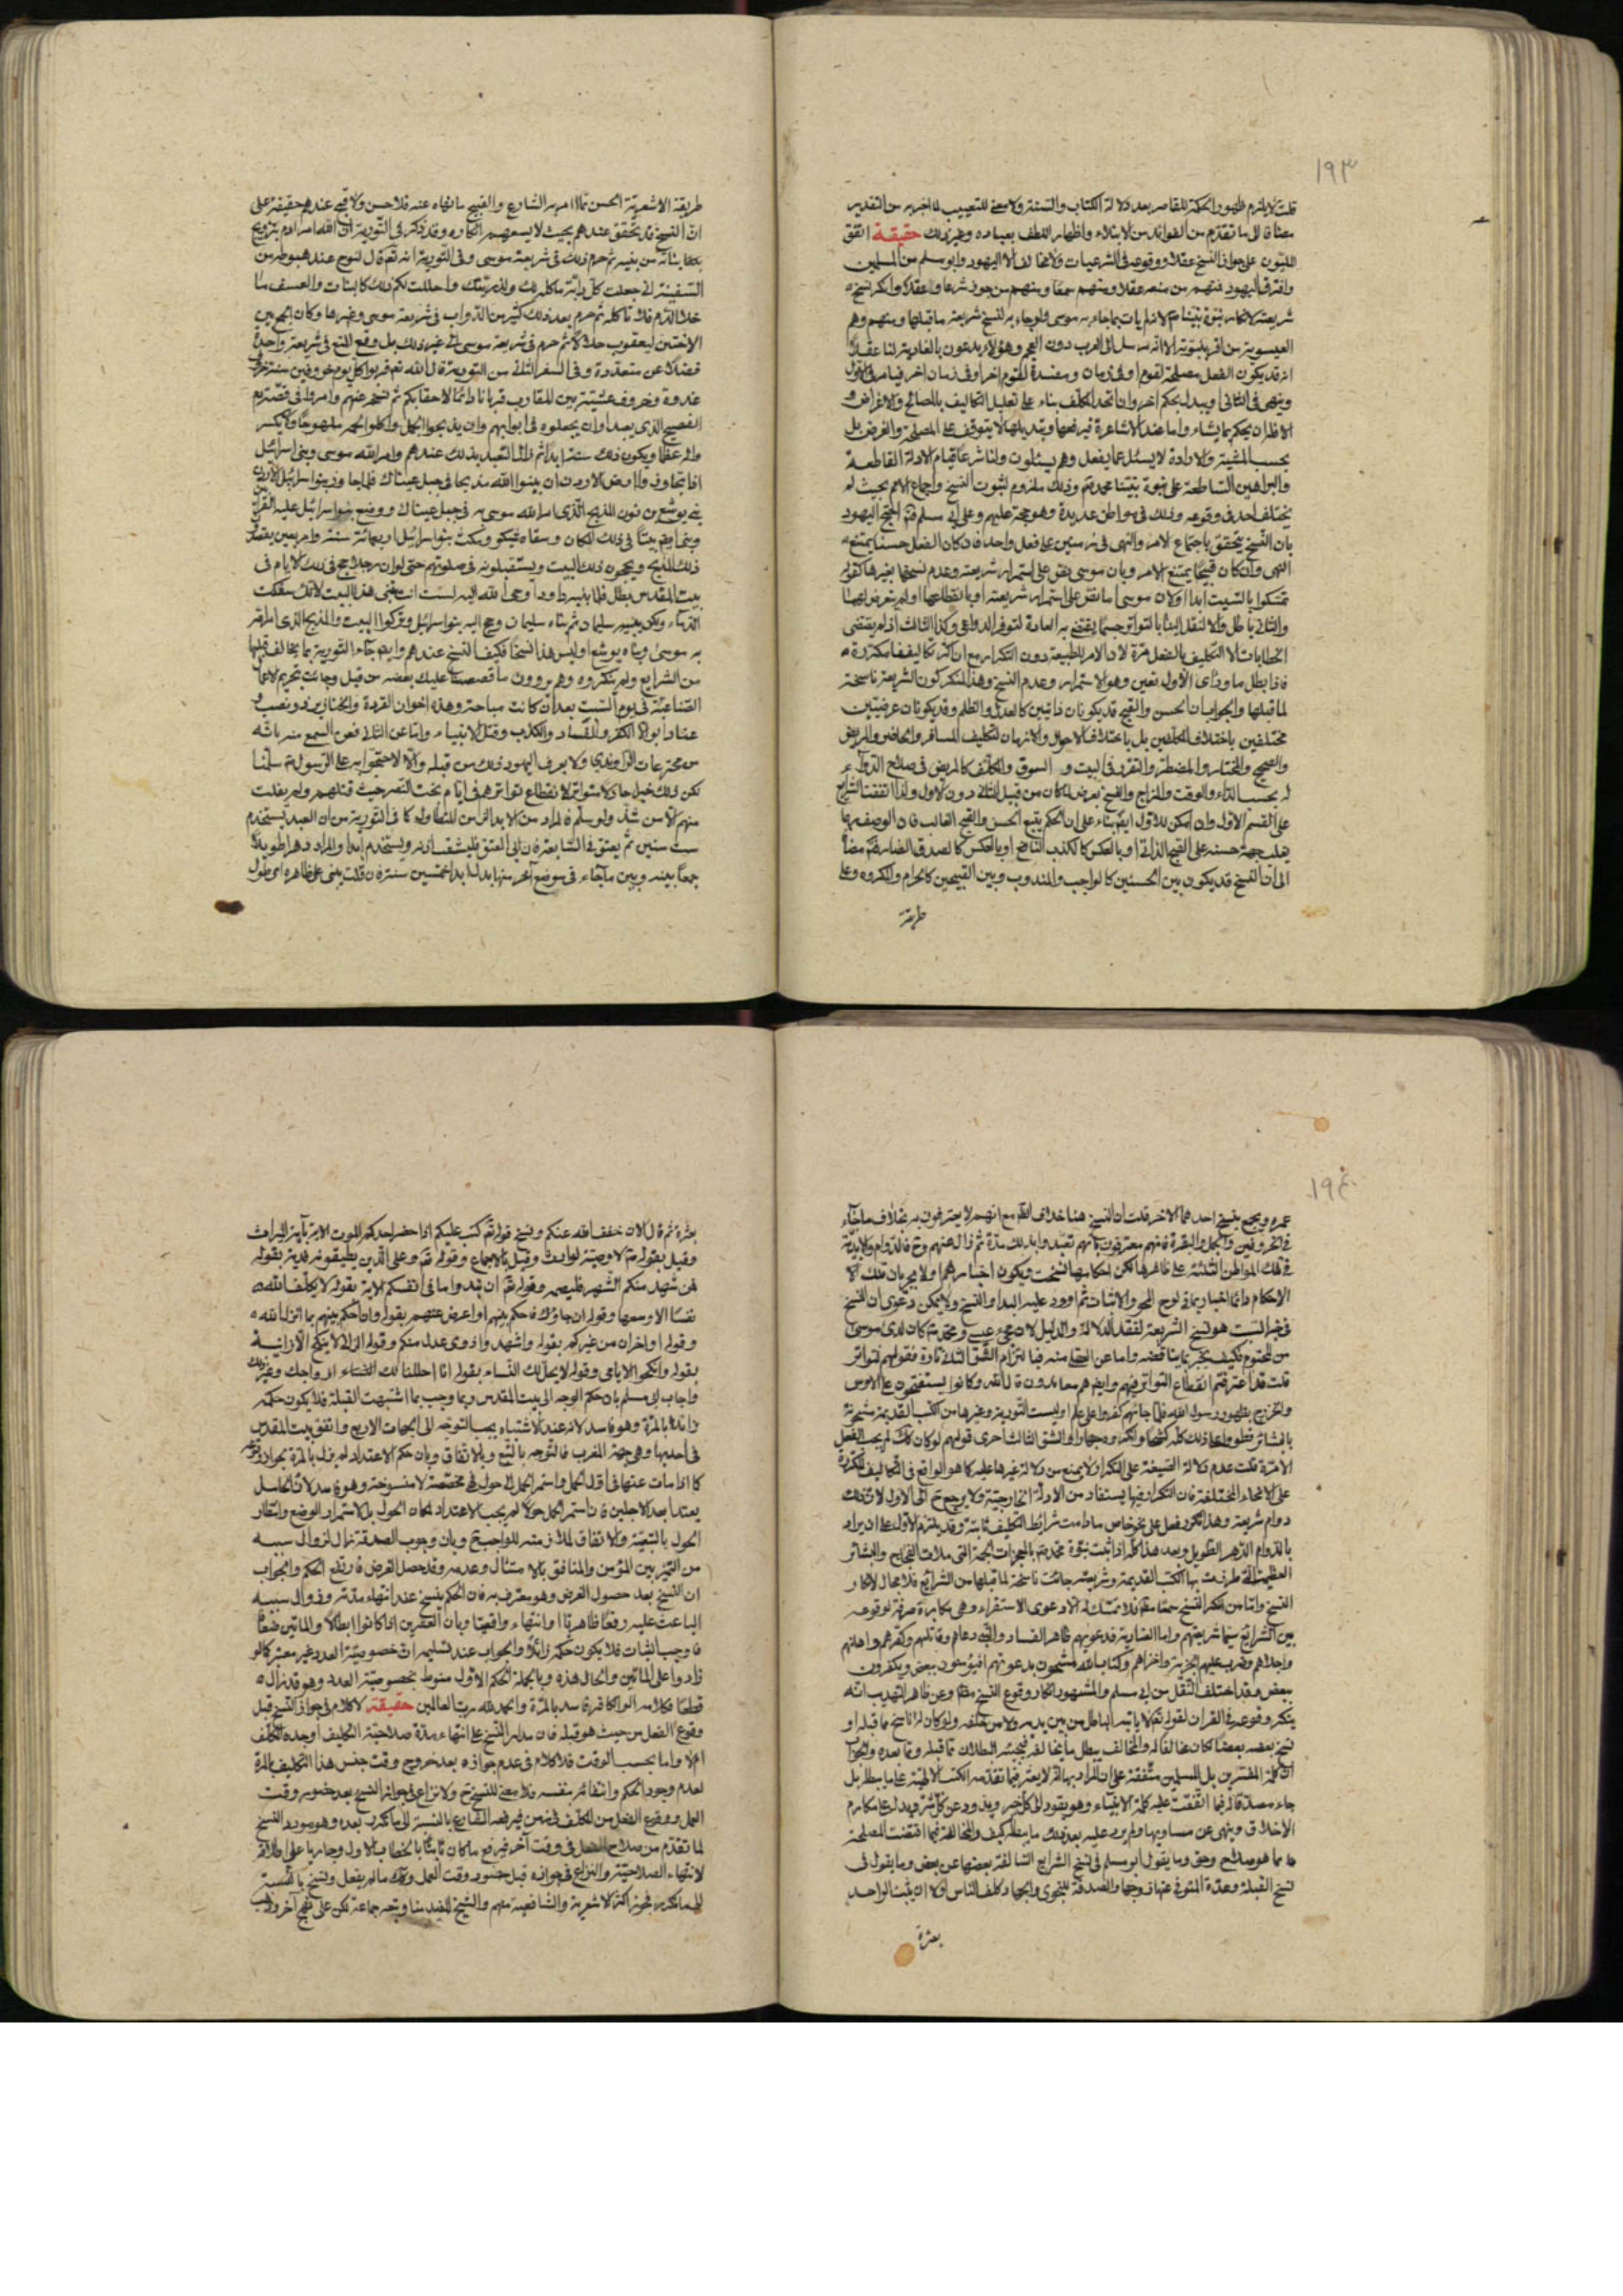 ١٩٣
قلت لا يلزم ظهور الحكمة للقاصر بعد دلالة الكتاب والسنة ولا معنى للتعييب لما خبر به من التقدير
مضافا الى ما تقدم من الفوائد من الابتلاء واظهار اللطف بعباده وغير ذلك حقيقة اتفق
المليون على جواز النسخ عقلا ووقوعه في الشرعيات ولا مخالف الا اليهود وابو مسلم من المسلمين
وافترق اليهود فمنهم من منعه عقلا ومنهم سمعا ومنهم من جوزه شرعا وعقلا وانكر نسخ
شريعته لانكاره نبوة نبينا م لانه لم يات بما جاء به موسى ولو جاء به لنسخ شريعة ما قبلها ومنهم وهم
العيسوية من اقر بنبوته الا انه مرسل الى العرب دون العجم وهؤلاء يدعون بالعنادية لنا عقلا
انه قد يكون الفعل مصلحة لقوم او في زمان ومفسدة لقوم اخر او في زمان اخر فيامر في الاول
وينهى في الثاني او يبدله بحكم اخر وان اتحد المكلف بناء على تعليل التكاليف بالمصالح والاغراض و
الا فله ان يحكم بما يشاء واما عند الاشاعرة فيرفعها وتبديلها لا يتوقف على المصلحة والغرض بل
بحسب المشية والارادة لا يسئل عما يفعل وهم يسئلون ولنا شرعا قيام الادلة القاطعة
والبراهين الساطعة على نبوة نبينا محمد ص وذلك ملزوم لثبوت النسخ واجماع الامم بحيث لم
يختلف احد في وقوعه وذلك في مواطن عديدة وهو حجة عليهم وعلى ابي مسلم احتج اليهود
بان النسخ يتحقق باجتماع الامر والنهي في زمنين على فعل واحد فان كان الفعل حسنا يمتنع
النهي وان كان قبيحا يمتنع الامر وبان موسى نص على استمرار شريعته وعدم نسخها بغيرها كقوله
تمسكوا بالسبت ابدا ولان موسى اما نص على استمرار شريعته او بانقطاعها او لم يتعرض لهما
والثاني باطل والا لنقل الينا بالتواتر حسبما يقتضيه العادة لتوفر الدواعي وكذا الثالث اذ لم يقتضى
الخطابات الا التكليف بالفعل مرة لان الامر للطبيعة دون التكرار مع ان اكثر تكاليفنا مكررة
فاذا بطل ما وراى الاول تعين وهو الاستمرار وعدم النسخ وهذا المنكر كون الشريعة ناسخة
لما قبلها والجواب ان الحسن والقبح قد يكونان ذاتيين كالعدل والظلم وقد يكونان عرضيين
مختلفين باختلاف المكلفين بل باختلاف الاحوال والازمان لتكليف المسافر والحاضر والمريض
والصحيح والمختار والمضطر والتفرد في البيت و السوق والمكلف كالمريض في صلاح الدواء
له بحسب الداء والوقت والمزاج والنسخ بعرضه امكان من قبيل الثاني دون الاول واذا اتفقت الشرايع
على القسم الاول وان امكن للاول ايضا بناء على ان الحكم يتبع الحسن والقبح الغالب فان الوصف بهما
يغلب جهة حسنه على القبح الذاتي او بالعكس كالكذب النافع او بالعكس كالصدق الضار فتم مضافا
الى ان النسخ قد يكون بين الحسنين كالواجب والمندوب وبين القبيحين كالحرام والمكروه وعلى
طريقة
طريقة الاشعرية الحسن ما امر به الشارع والقبيح ما نهاه عنه فلا حسن ولا قبح عندهم حقيقة على
ان النسخ قد تحقق عندهم بحيث لا يسعهم انكاره وقد ذكر في التورية ان الله امر ادم بتزويج
بناته من بنيه ثم حرم ذلك في شريعة موسى وفي التورية انه تعالى قال لنوح عند هبوطه من
السفينة اني جعلت كل دابة ماكلا لك ولذريتك واحللت لكم ذلك كالنبات والعسف ما
خلا الدم فلا تاكله ثم حرم بعد ذلك كثير من الدواب في شريعة موسى وغيرها وكان الجمع بين
الاختين ليعقوب حلالا ثم حرم في شريعة موسى الى غير ذلك بل وقع المنع في شريعة واحدة
فضلا عن متعددة وفي السفر الثاني من التورية قال الله تعالى قربوا كل يوم خروفين سنة خروف
غدوة وخروف عشية بين المغارب قربانا دائما لاحقابكم ثم نسخ عنهم وامروا في قصة دم
الفصيح الذي يعبد وان يجعلوه في ابوابهم وان يذبحوا الجمل واكلوا لحمه ملهوجا ولا يكسروا
والعظما ويكون ذلك سنة ابدا ثم زال التعبد بذلك عندهم وامر الله موسى وبني اسرائيل
اذا تجاوزوا ارض الاردن ان يبنوا الله مذبحا في جبل عيناك فلما جاوز بنوا اسرائيل الاردن
بنى يوشع بن نون المذبح الذي امر الله موسى به في جبل عيناك ووضع بنوا اسرائيل عليه القرابين
وبنى ايضا بيتا في ذلك المكان وسماه شيكو ومكث بنوا اسرائيل اربعمائة سنة واربعين يقصدون
ذلك المذبح ويحجون ذلك البيت ويستقبلونه في صلوتهم حتى لو ان رجلا حج في تلك الايام في
بيت المقدس بطل فلما بنيه داود اوحى الله اليه لست انت تبنى هذا البيت لانك سفكت
الدماء ولكن يبنيه سليمان ثم بناه سليمان وحج اليه بنوا اسرائيل وتركوا البيت والمذبح الذي امر الله
به موسى وبناه يوشع اوليس هذا نسخا فكيف النسخ عندهم وايضا جاء التورية بما يخالف قبلها
من الشرايع ولم ينكروه وهم يروون ما قصصنا عليك بعضه من قبل وجائت بتحريم الاعمال
الصناعية في يوم السبت بعد ان كانت مباحة وهذه اخوان القردة والخنازير
عنادا بوا الكفر والفساد والكذب وقتل الانبياء واما عن الثاني فعن السمع منه بانه
من مخترعات الراوندي ولا يعرف اليهود ذلك من قبله والا لاحتجوا به على الرسول ص سلمنا
لكن ذلك خبر احاد لا متواتر لانقطاع تواترهم في ايام بخت النصر حيث قتلهم ولم يفلت
منهم الا من شذ ولو سلم فالمراد من الابد الزمن المتطاول كما في التورية من ان العبد يستخدم
ست سنين ثم يعتق في السابعة فان ابى العتق فليشقب اذنه ويستخدم ابدا والمراد دهرا طويلا
جمعا بينه وبين ما جاء في موضع اخر منها بدل ابدا خمسين سنة فان قلت يبنى على ظاهره اي طول
١٩٤
عمره ويجمع بنسخ احدهما الاخر قلت ان النسخ هنا خلاف الظاهر مع انهم لا يعترفون به بخلاف ما جاء
في الخروفين والجمل والبقرة فانهم معترفون بانهم تعبدوا بذلك مدة ثم زال عنهم وح فالدوام والابدية
في تلك المواطن الثلثة على ظاهرها لكن احكامها نسخت ويكون اخبارهم اولا بجريان تلك
الاحكام دائما اخبار بما في لوح المحو والاثبات ثم اورد عليه البداء والنسخ ولا يمكن دعوى ان النسخ
في خبر السبت هو نسخ الشريعة لفقد الدلالة والدليل لان مجيء عيسى ومحمد ص كان لدى موسى
من المحتوم فكيف يخبر بما يناقضه واما عن العقلي منه فبالتزام الشق الثاني تارة فقولهم لتواتر
قلت قد اعترفتم انقطاع التواتر فيهم وايضا هم معاندون قال الله وكانوا يستفتحون على الاوس
والخزرج بظهور رسول الله فلما جائهم كفروا على علم وليست التورية وغيرها من الكتب القديمة مشحونة
بالبشائر فطووا على ذلك كله كشحا وانكروه جهارا والشق الثالث اخرى قولهم لو كان كذلك لم يجب الفعل
الا مرة قلت عدم دلالة الصيغة على التكرار لا يمنع من دلالة غيرها عليه كما هو الواقع في التكاليف المتكررة
على الانحاء المختلفة فان التكرار فيها يستفاد من الادلة الخارجية ولا يرجع ح الى الاول لان ذلك
دوام شريعة وهذا تكرر فعل على نحو خاص ما دامت شرائط التكليف ثابتة وقد يلتزم الاول على ان يراد
بالدوام الدهر الطويل وبعد هذا كله اذا ثبت نبوة محمد ص بالمعجزات الجمة التي ملات الفجاج والبشائر
العظيمة التي طرفت بها الكتب القديمة وشريعته جائت ناسخة لما قبلها من الشرايع فلا مجال لانكار
النسخ واما من انكر النسخ سمعا فلا متمسك له الا دعوى الاستقراء وهي مكابرة صرفة لوقوعه
بين الشرايع سيما شريعتهم واما العنادية فدعويهم ظاهر الفساد والنبي دعاهم وقاتلهم وكفرهم واهانهم
واجلاهم وضرب عليهم الجزية واخزاهم وكتاب الله مشحون بدعوتهم افيؤمنون ببعض ويكفرون
ببعض وقد اختلف النقل من ابي مسلم والمشهور انكار وقوع النسخ مطلقا وعن ظاهر التهذيب انه
ينكر وقوعه في القران لقوله تعالى لا ياتيه الباطل من بين يديه ولا من خلفه ولو كان له ناسخ مما قبله او
نسخ بعضه بعضا لكان مخالفا له والمخالف يبطل ما يخالفه فيجيئه البطلان مما قبله ومما بعده والجواب
ان كلمة المفسرين بل المسلمين متفقة على ان المراد بها انه لا يعتر فيما تقدمه الكتب الالهية على ما يبطله بل
جاء مصدقا له فيما اتفقت عليه كلمة الانبياء وهو يقود الى كل خير ويذود عن كل شر ويدل على مكارم
الاخلاق وينهى عن مساويها ولم يرد عليه بعد ذلك ما يبطله كيف والمخالفة فيما اقتضت المصلحة
مما هو صلاح وحق وما يقول ابو مسلم في نسخ الشرايع السالفة بعضها عن بعض وما يقول في
نسخ القبلة وعدة المتوفى عنها زوجها والصدقة للنجوى والجهاد كلف الناس اولا ان يثبت الواحد
بعشرة
بعشرة ثم قال الان خفف الله عنكم ونسخ قوله تعالى كتب عليكم اذا حضر احدكم الموت الاية باية الميراث
وقيل بقوله ص لا وصية لوارث وقيل بالاجماع وقوله تعالى وعلى الذين يطيقونه فدية بقوله
فمن شهد منكم الشهر فليصمه وقوله تعالى ان تبدوا ما في انفسكم الاية بقوله لا يكلف الله
نفسا الا وسعها وقوله ان جاؤك فاحكم بينهم او اعرض عنهم بقوله وان احكم بينهم بما انزل الله
وقوله او اخران من غيركم بقوله واشهدوا ذوى عدل منكم وقوله الزاني لا ينكح الا زانية
بقوله وانكحوا الايامى وقوله لا يحل لك النساء بقوله انا احللنا لك ازواجك وغير ذلك
واجاب ابي مسلم بان حكم التوجه الى بيت المقدس ربما وجب بما اشتبهت القبلة فلا يكون حكمه
زائلا بالمرة وهو فاسد لانه عند الاشتباه يجب التوجه الى الجهات الاربع واتفق بيت المقدس
في احديها وهي جهة المغرب فالتوجه بالتبع وبالاتفاق وبان حكم الاعتداد لم يزل بالمرة بجواز وقوعه
كما اذا مات عنها في اول الحمل واستمر الحمل الى حول فهي مخصصة لا منسوخة وهو فاسد لان الحامل
يعتد ابعد الاجلين فان استمر الحمل حولا لم يجب الاعتداد لمكان الحول بل لاستمرار الوضع وانتظار
الحول بالتبعية والاتفاق لملازمته للواجب ح وبان وجوب الصدقة زال لزوال سببه
من التميز بين المؤمن والمنافق بالامتثال وعدمه وقد حصل الغرض فارتفع الحكم والجواب
ان النسخ بعد حصول الغرض وهو معترف به فان الحكم ينسخ عند انتهاء مدته وزوال سببه
الباعث عليه رفعا ظاهريا وانتهاء واقعيا وبان العشرين اذا كانوا ابطالا والماتين ضعفاء
فاوجب الثبات فلا يكون حكمه زائلا والجواب عند تسليمه ان خصوصية العدد غير معتبر كما لو
زادوا على الماتين والحال هذه وبالجملة الحكم الاول منوط بخصوصية العدد وهو قد زال
قطعا فكلامه الواكافه فاسد بالمرة والحمد لله رب العالمين حقيقة لا كلام في جواز النسخ قبل
وقوع الفعل من حيث هو قبله فان مدار النسخ على انتهاء مدة صلاحية التكليف اوجده المكلف
ام لا واما بحسب الوقت فلا كلام في عدم جوازه بعد خروج وقت جنس هذا التكليف بالمرة
لعدم وجود الحكم وانتفائه بنفسه فلا معنى للنسخ ح ولا نزاع في جواز النسخ بعد حضور وقت
العمل ووقوع الفعل من المكلف في زمن فيرفعه الشارع بالنسبة الى ما تكرر بعده وهو مورد النسخ
لما تقدم من صلاح الفعل في وقت اخر فيرفع ما كان ثابتا بالخطاب الاول وجاريا على اطلاقه
لانتهاء الصلاحية والنزاع في جوازه قبل حضور وقت العمل وذلك مما لم يفعل ونسخ بالنسبة
الى ما تكرر فجوزه اكثر الاشعرية والشافعية منهم والشيخ المفيد منا وتبعه جماعة لكن على نهج اخر وذهب